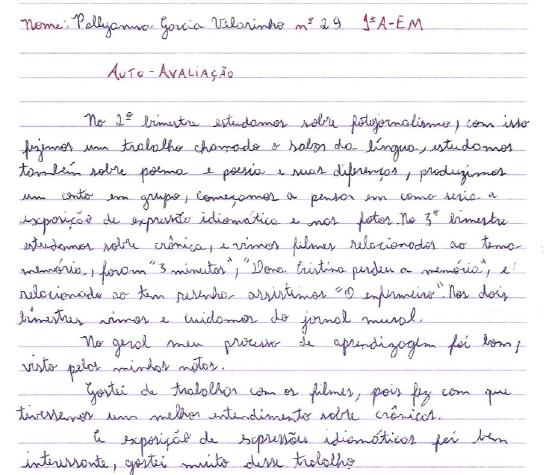 Nome: Pollyanna Garcia Vilarinho nº 29 1ºA-EM
AUTO-AVALIAÇÃO
No 2º bimestre estudamos sobre fotojornalismo, com isso
fizemos um trabalho chamado o sabor da língua, estudamos
também sobre poema e poesia e suas diferenças, produzimos
um conto em grupo, começamos a pensar em como seria a
exposição de expressão idiomática e nas fotos. No 3º bimestre
estudamos sobre crônica, e vimos filmes relacionados ao tema
memória, foram "3 minutos", "Dona Cristina perdeu a memória", e
relacionado ao tem resenha assistimos "O enfermeiro". Nos dois
bimestres vimos e cuidamos do jornal mural.
No geral meu processo de aprendizagem foi bom,
visto pelas minhas notas.
Gostei de trabalhar com os filmes, pois fez com que
tivessemos um melhor entendimento sobre crônicas.
E exposição de expressões idiomáticas foi bem
interessante, gostei muito desse trabalho